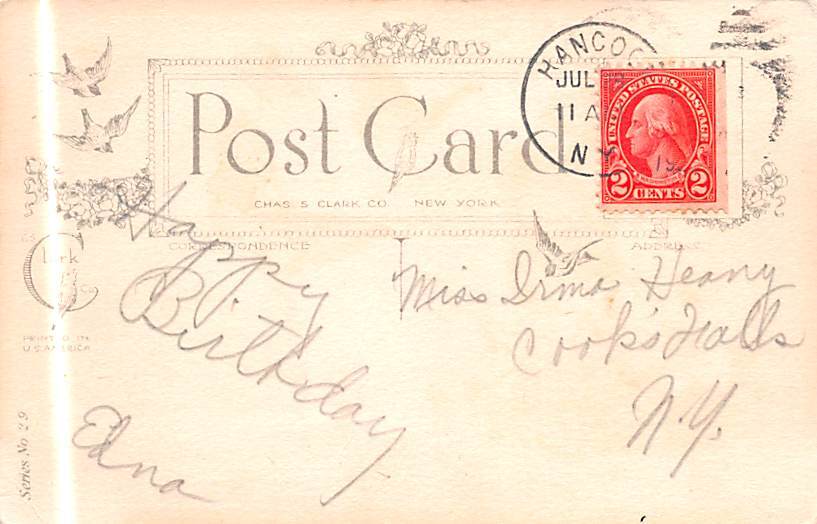 Post Card
CHAS. S. CLARK CO. NEW YORK
HANCOCK
JUL
11 A
N.Y.
19
UNITED STATES POSTAGE
2 CENTS 2
CORRESPONDENCE
ADDRESS
Clark
Co
PRINTED IN
U.S. AMERICA
Series No 29
Happy
Birthday
Edna
Miss Irma Heany
Cook's Falls
N.Y.